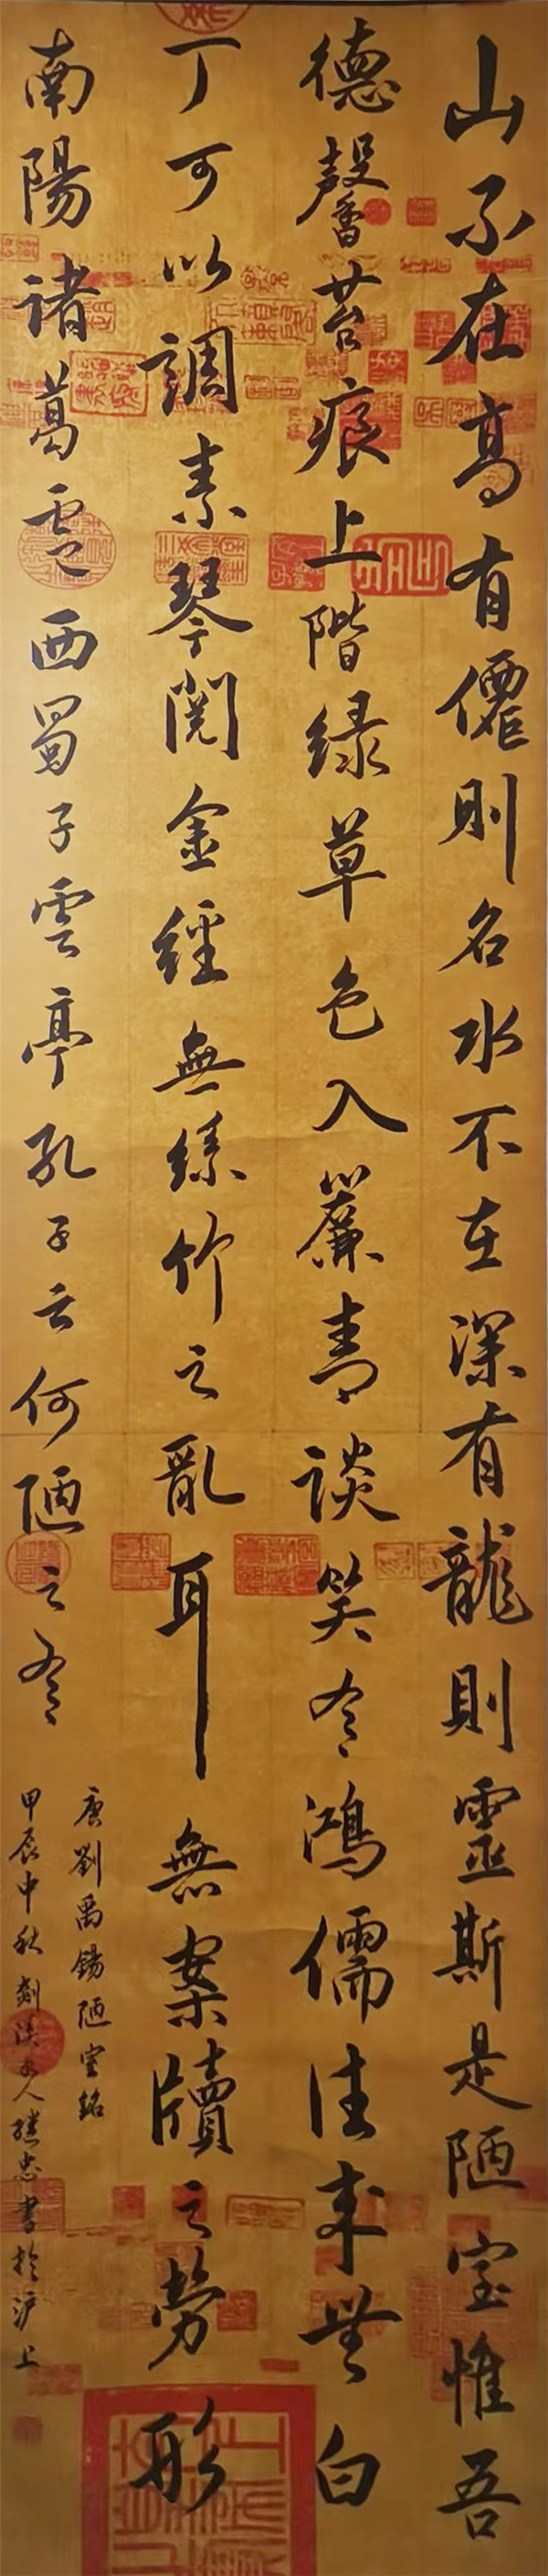 山不在高有僊則名水不在深有龍則靈斯是陋室惟吾
德馨苔痕上階緑草色入簾青談笑有鴻儒往來無白
丁可以調素琴閱金經無絲竹之亂耳無案牘之勞形
南陽諸葛廬西蜀子雲亭孔子云何陋之有
唐劉禹錫陋室銘
甲辰中秋剡溪人繼忠書於沪上